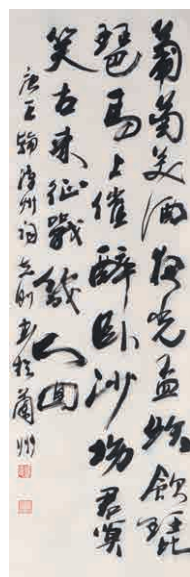 葡萄美酒夜光盃欲飲琵
琶馬上催醉卧沙場君莫
笑古來征戰幾人回
唐王翰涼州詞 則書於蘭州